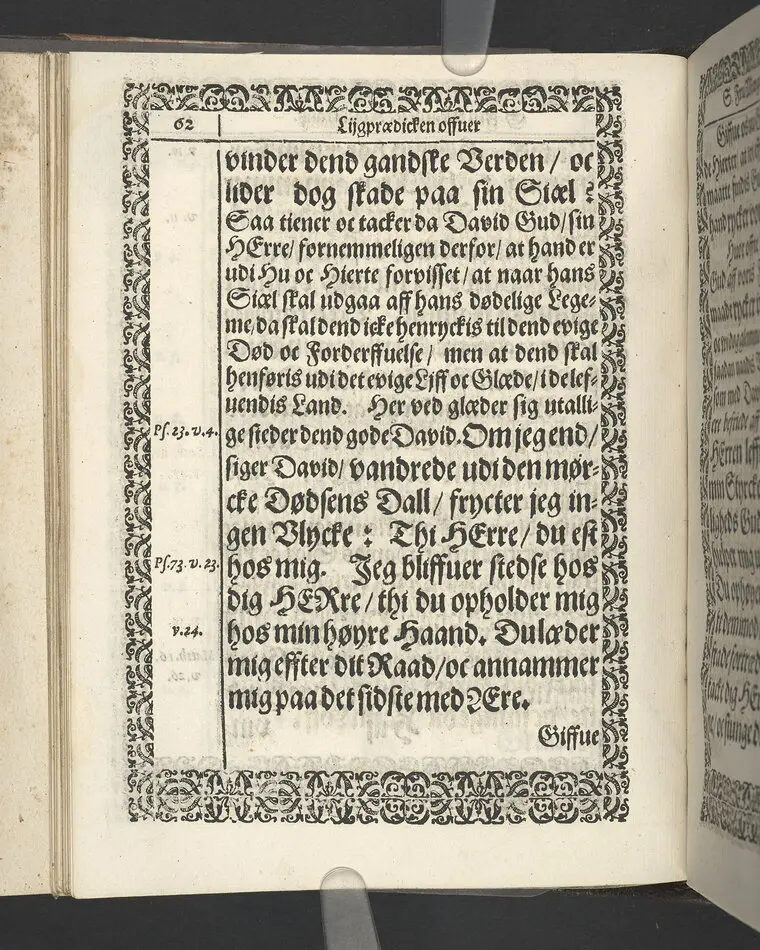 62
Lijgprædicken offuer
vinder dend gandske Verden / oc
lider dog skade paa sin Siæl :
Saa tiener oc tacker da David Gud / sin
HErre / fornemmeligen derfor / at hand er
udi Hu oc Hierte forvisset / at naar hans
Siæl skal udgaa aff hans dødelige Lege-
me, da skal dend icke henryckis til dend evige
Død oc Forderffuelse / men at dend skal
henføris udi det evige Liff oc Glæde / i de lef-
uendis Land. Her ved glæder sig utalli-
Ps. 23. v. 4.
ge steder dend gode David. Om jeg end /
siger David / vandrede udi den mør-
cke Dødsens Dall / frycter jeg in-
gen Vlycke : Thi HErre / du est
Ps. 73. v. 23.
hos mig. Jeg bliffuer stedse hos
dig HERre / thi du opholder mig
v. 24.
hos min høyre Haand. Du læder
mig effter dit Raad / oc annammer
mig paa det sidste med Ære.
Giffue